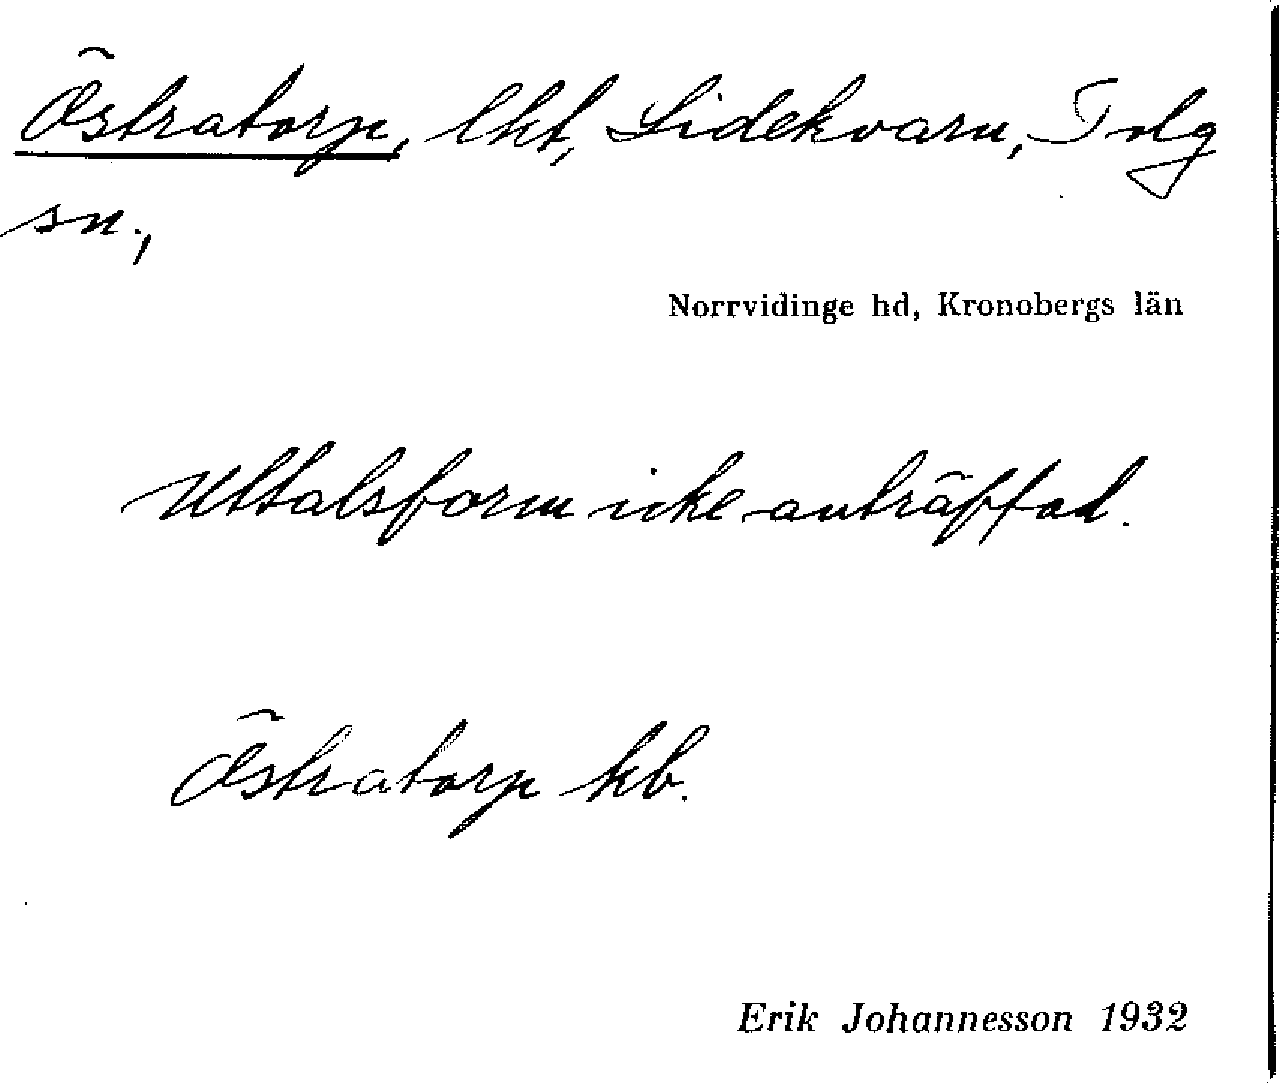 Östratorp, lht, Lidekvarn, Tolg
sn.,
Norrvidinge hd, Kronobergs län
Uttalsform icke anträffad.
Östratorp kb.
Erik Johannesson 1932